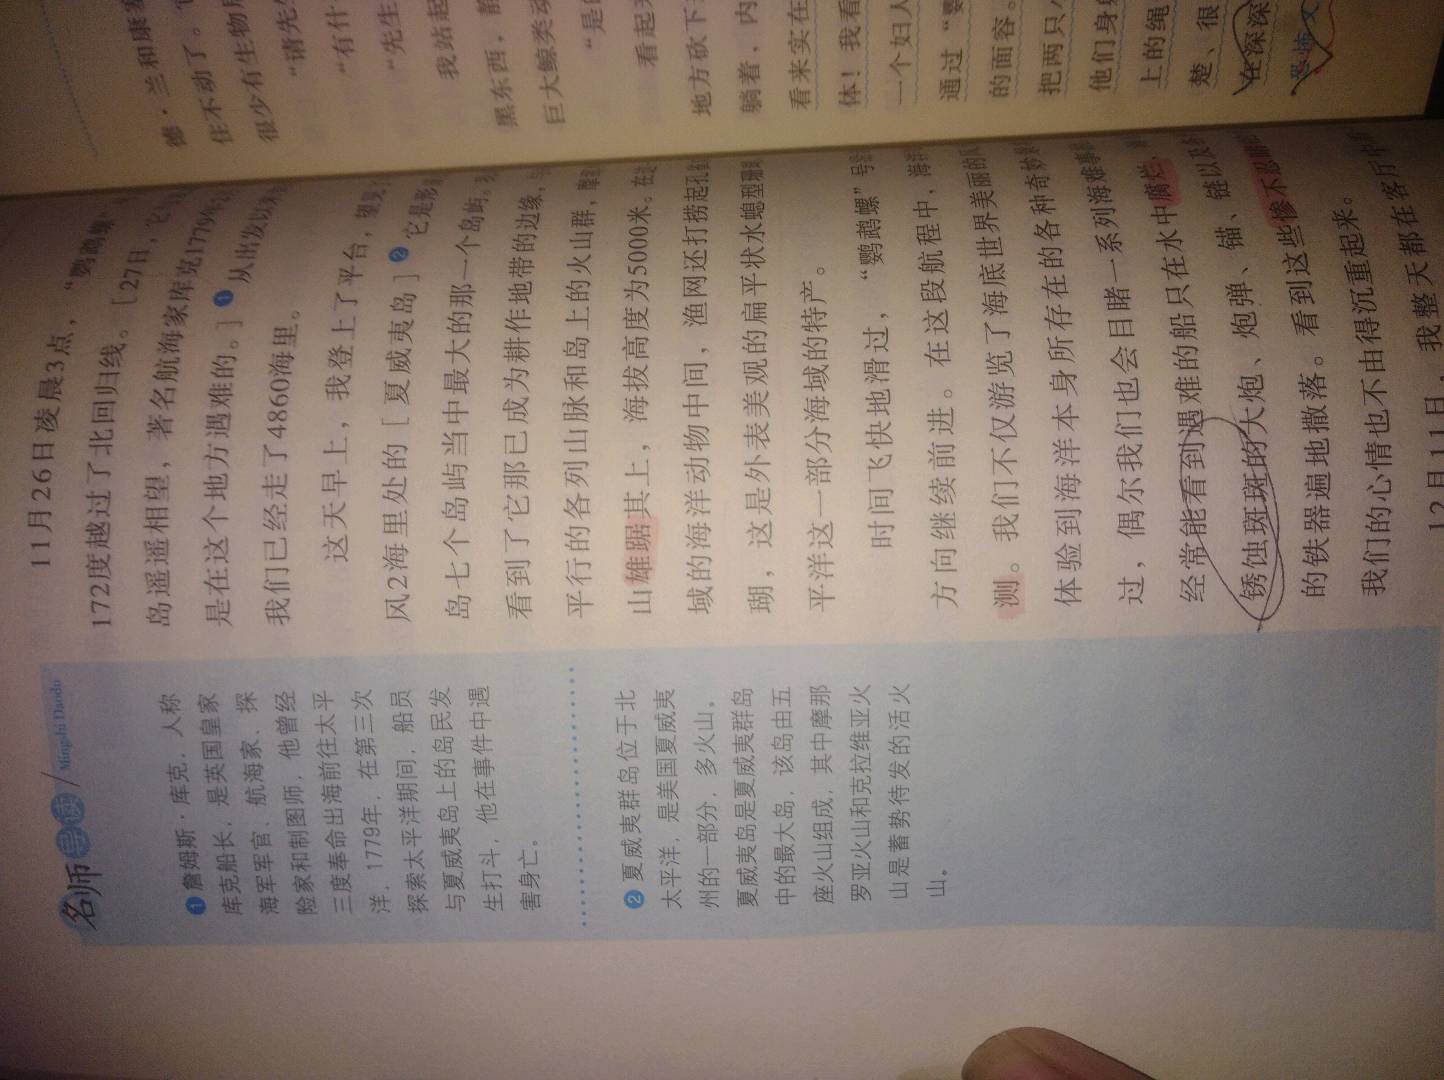 名师导读
Mingshi Daodu
❶ 詹姆斯·库克，人称
库克船长，是英国皇家
海军军官、航海家、探
险家和制图师，他曾经
三度奉命出海前往太平
洋，1779年，在第三次
探索太平洋期间，船员
与夏威夷岛上的岛民发
生打斗，他在事件中遇
害身亡。
❷ 夏威夷群岛位于北
太平洋，是美国夏威夷
州的一部分，多火山。
夏威夷岛是夏威夷群岛
中的最大岛，该岛由五
座火山组成，其中摩那
罗亚火山和克拉维亚火
山是蓄势待发的活火
山。
11月26日凌晨3点，“鹦鹉螺”
172度越过了北回归线。［27日，它
岛遥遥相望，著名航海家库克1779年
是在这个地方遇难的。］❶ 从出发以
我们已经走了4860海里。
这天早上，我登上了平台，望见
风2海里处的［夏威夷岛］❷ 它是
岛七个岛屿当中最大的那一个岛屿。
看到了它那已成为耕作地带的边缘，
平行的各列山脉和岛上的火山群，
山雄踞其上，海拔高度为5000米。在
域的海洋动物中间，渔网还打捞起孔
瑚，这是外表美观的扁平状水螅型珊
平洋这一部分海域的特产。
时间飞快地滑过，“鹦鹉螺”号
方向继续前进。在这段航程中，海
测。我们不仅游览了海底世界美丽的
体验到海洋本身所存在的各种奇妙
过，偶尔我们也会目睹一系列海难事
经常能看到遇难的船只在水中腐烂，
锈蚀斑斑的大炮、炮弹、锚、链以及
的铁器遍地撒落。看到这些惨不忍
我们的心情也不由得沉重起来。
12月11日，我整天都在客厅中
德·兰和康塞
住不动了。
很少有生物
“请先生
“有什
“先生
我站起
黑东西，静
巨大鲸类动
“是的
看起来
地方砍下
躺着，内
看来实在
体！我看
一个妇人
通过“鹦
的面容。
把两只
他们身
上的绳
楚、很
在深深
恐怖